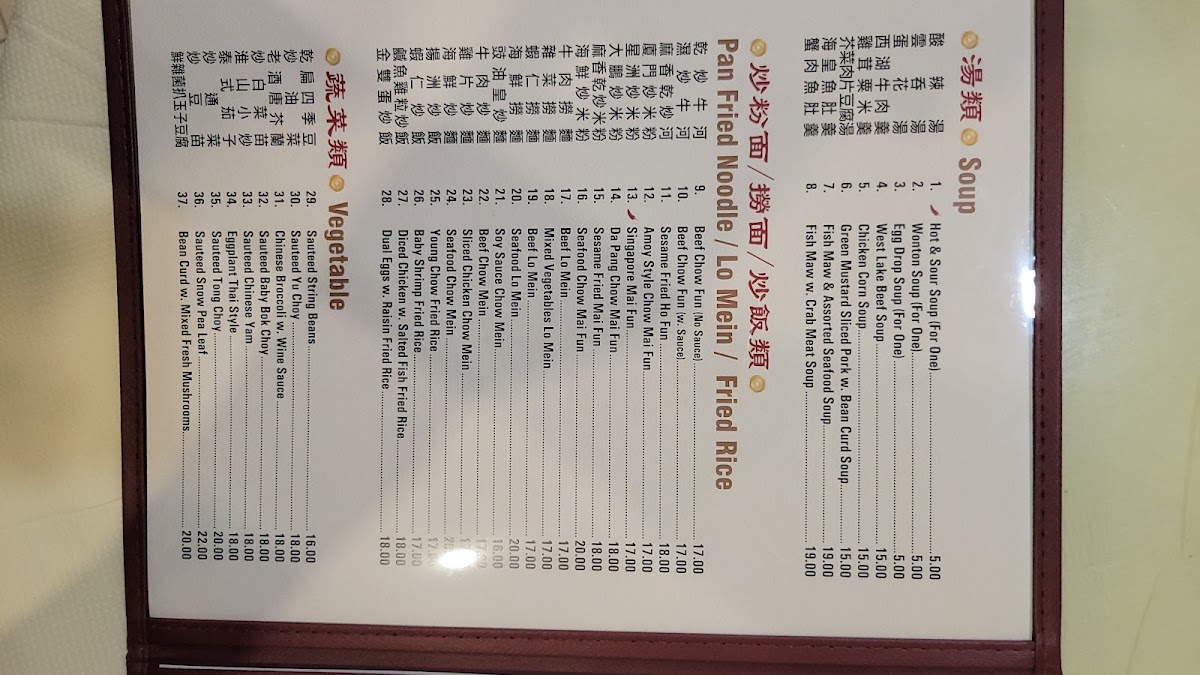 湯類 Soup
酸辣湯 1. Hot & Sour Soup (For One) 5.00
雲吞湯 2. Wonton Soup (For One) 5.00
蛋花湯 3. Egg Drop Soup (For One) 5.00
西湖牛肉羹 4. West Lake Beef Soup 15.00
雞茸粟米羹 5. Chicken Corn Soup 15.00
芥菜肉片豆腐湯 6. Green Mustard Sliced Pork w. Bean Curd Soup 15.00
海皇魚肚羹 7. Fish Maw & Assorted Seafood Soup 19.00
蟹肉魚肚羹 8. Fish Maw w. Crab Meat Soup 19.00
炒粉面/撈面/炒飯類
Pan Fried Noodle / Lo Mein / Fried Rice
乾炒牛河 9. Beef Chow Fun (No Sauce) 17.00
濕炒牛河 10. Beef Chow Fun (w. Sauce) 17.00
麻香乾炒河 11. Sesame Fried Ho Fun 18.00
廈門炒米粉 12. Amoy Style Chow Mai Fun 17.00
星洲炒米粉 13. Singapore Mai Fun 17.00
大鵬炒米粉 14. Da Pang Chow Mai Fun 18.00
麻香乾炒米粉 15. Sesame Fried Mai Fun 18.00
海鮮炒米粉 16. Seafood Chow Mai Fun 20.00
牛肉撈麵 17. Beef Lo Mein 17.00
雜菜撈麵 18. Mixed Vegetables Lo Mein 17.00
蝦仁撈麵 19. Beef Lo Mein 17.00
海鮮撈麵 20. Seafood Lo Mein 20.00
豉油皇炒麵 21. Soy Sauce Chow Mein 16.00
牛肉炒麵 22. Beef Chow Mein 17.00
雞片炒麵 23. Sliced Chicken Chow Mein
海鮮炒麵 24. Seafood Chow Mein
揚洲炒飯 25. Young Chow Fried Rice
蝦仁炒飯 26. Baby Shrimp Fried Rice 17.00
鹹魚雞粒炒飯 27. Diced Chicken w. Salted Fish Fried Rice 18.00
金雙蛋炒飯 28. Dual Eggs w. Raisin Fried Rice 18.00
蔬菜類 Vegetable
乾扁四季豆 29. Sauteed String Beans 16.00
炒油菜 30. Sauteed Yu Choy 18.00
老酒唐芥蘭 31. Chinese Broccoli w. Wine Sauce 18.00
炒白菜苗 32. Sauteed Baby Bok Choy 18.00
淮山小炒 33. Sauteed Chinese Yam 18.00
泰式茄子 34. Eggplant Thai Style 18.00
炒通菜 35. Sauteed Tong Choy 20.00
炒豆苗 36. Sauteed Snow Pea Leaf 22.00
鮮雜菌扒玉子豆腐 37. Bean Curd w. Mixed Fresh Mushrooms 20.00